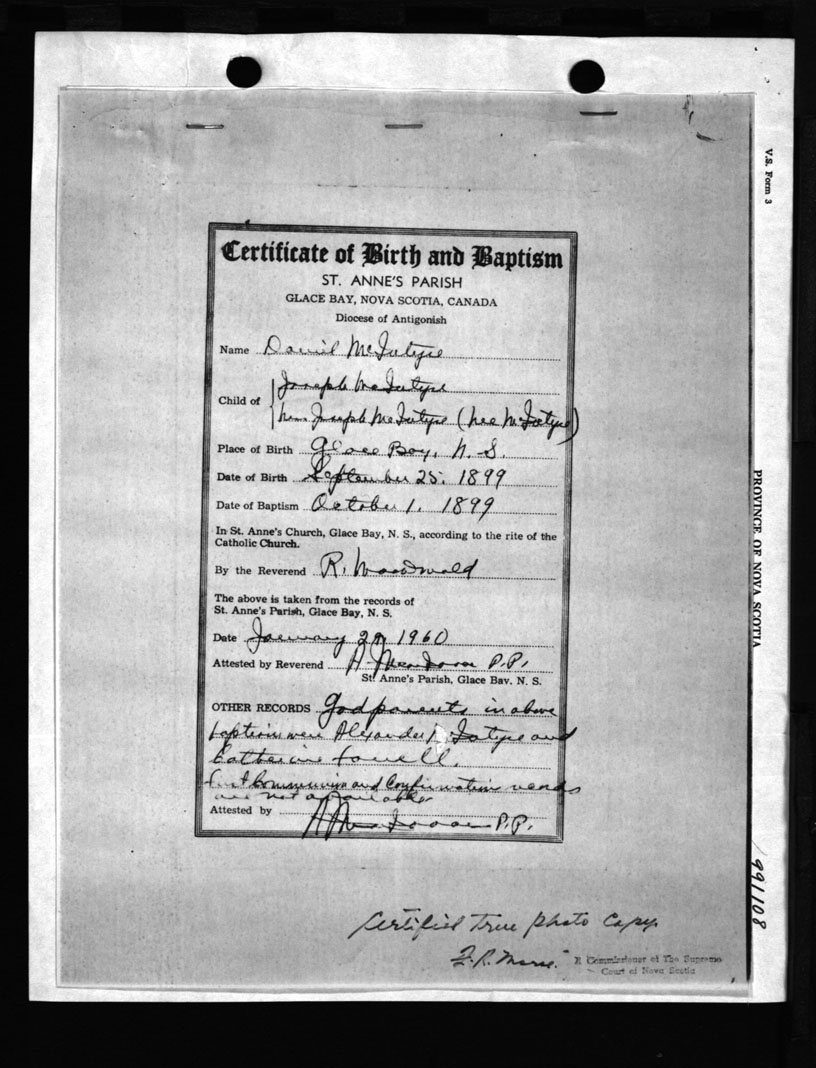 V.S. Form 3
Certificate of Birth and Baptism
ST. ANNE'S PARISH
GLACE BAY, NOVA SCOTIA, CANADA
Diocese of Antigonish
Name Daniel McIntyre
Child of Joseph McIntyre
Mrs Joseph McIntyre (nee McIntyre)
Place of Birth Glace Bay, N. S.
Date of Birth September 25. 1899
Date of Baptism October 1. 1899
In St. Anne's Church, Glace Bay, N. S., according to the rite of the
Catholic Church.
By the Reverend R.
The above is taken from the records of
St. Anne's Parish, Glace Bay, N. S.
Date January 29, 1960
Attested by Reverend P.P.
St. Anne's Parish, Glace Bay. N. S.
OTHER RECORDS Godparents in above
baptism were Alexander McIntyre and
Catherine
First Communion and Confirmation records
are not available
Attested by P.P.
PROVINCE OF NOVA SCOTIA
991108
Certified True Photo Copy.
A Commissioner of The Supreme
Court of Nova Scotia